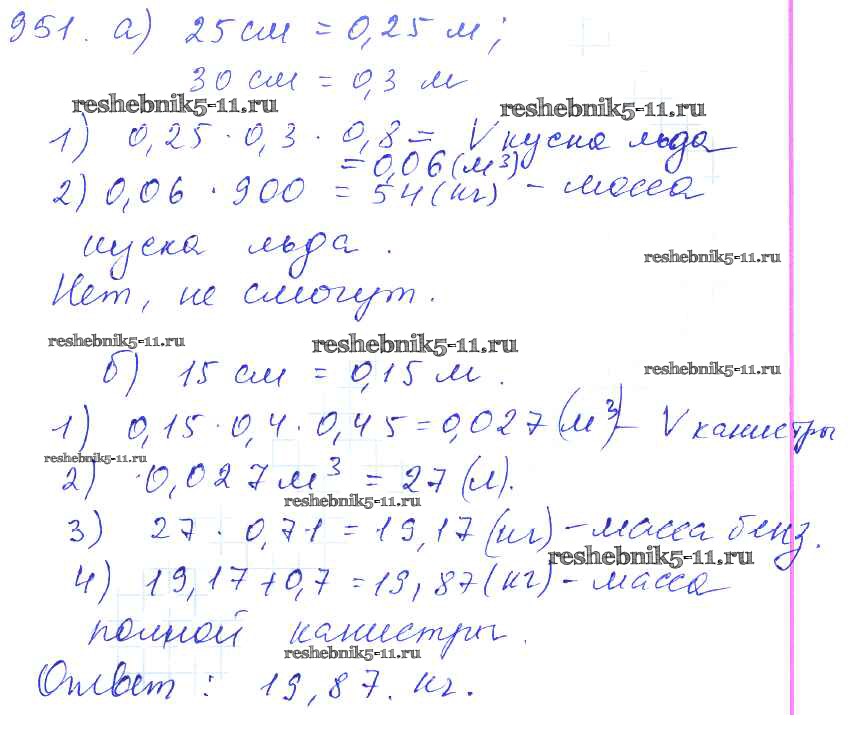 951. а) 25 см = 0,25 м;
30 см = 0,3 м
reshebnik5-11.ru reshebnik5-11.ru
1) 0,25 · 0,3 · 0,8 = V куска льда
= 0,06 (м³)
2) 0,06 · 900 = 54 (кг) - масса
куска льда.
reshebnik5-11.ru
Нет, не смогут.
reshebnik5-11.ru reshebnik5-11.ru
б) 15 см = 0,15 м.
reshebnik5-11.ru
1) 0,15 · 0,4 · 0,45 = 0,027 (м³) - V канистры
reshebnik5-11.ru
2) 0,027 м³ = 27 (л).
reshebnik5-11.ru
3) 27 · 0,71 = 19,17 (кг) - масса бенз.
reshebnik5-11.ru
4) 19,17 + 0,7 = 19,87 (кг) - масса
полной канистры.
reshebnik5-11.ru
Ответ: 19,87. кг.